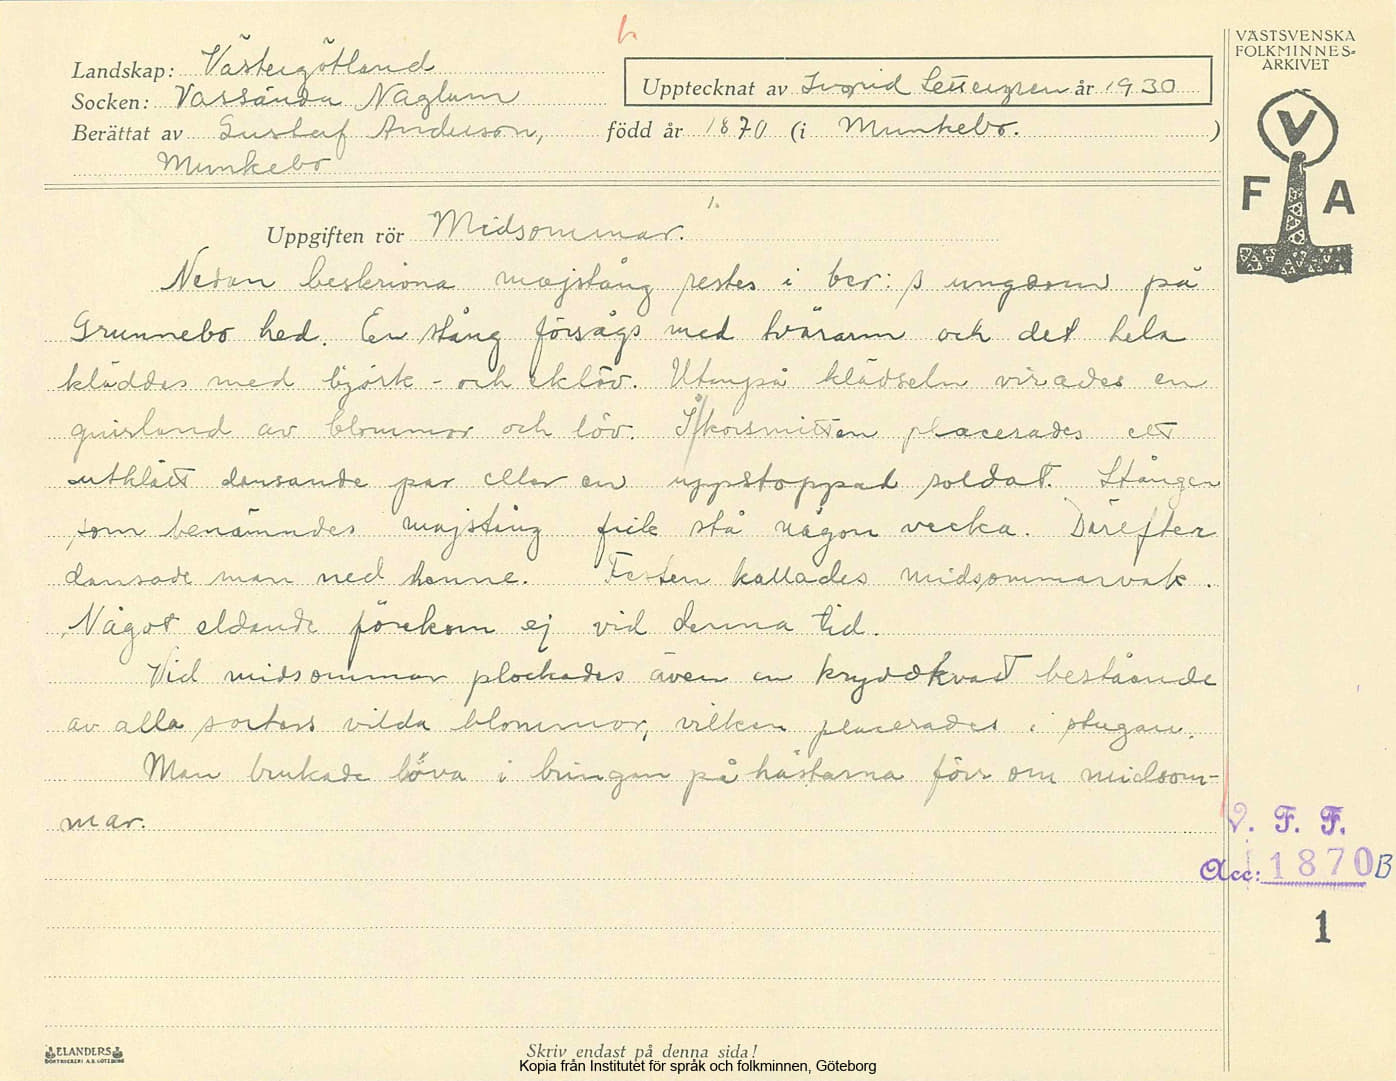 Landskap: Västergötland
Socken: Vassända Naglum
Upptecknat av Ingrid Settergren år 1930
Berättat av Gustaf Anderson, född år 1870 (i Munkebo. )
Munkebo
VÄSTSVENSKA
FOLKMINNES-
ARKIVET
V
F A
1.
Uppgiften rör Midsommar.
Nedan beskrivna majstång restes i ber:s ungdom på
Grunnebo hed. En stång försågs med tvärarm och det hela
kläddes med björk- och eklöv. Utanpå klädseln virades en
guirland av blommor och löv. I korsmitten placerades ett
utklätt dansande par eller en uppstoppad soldat. Stången
som benämndes majstång fick stå någon vecka. Därefter
dansade man ned henne. Festen kallades midsommarvak.
Något eldande förekom ej vid denna tid.
Vid midsommar plockades även en kryddkvast bestående
av alla sorters vilda blommor, vilken placerades i stugan.
Man brukade löva i bringan på hästarna förr om midsom-
mar.
V. F. F.
Acc: 1870 B
1
ELANDERS
BOKTRYCKERI A.B. GÖTEBORG
Skriv endast på denna sida!
Kopia från Institutet för språk och folkminnen, Göteborg